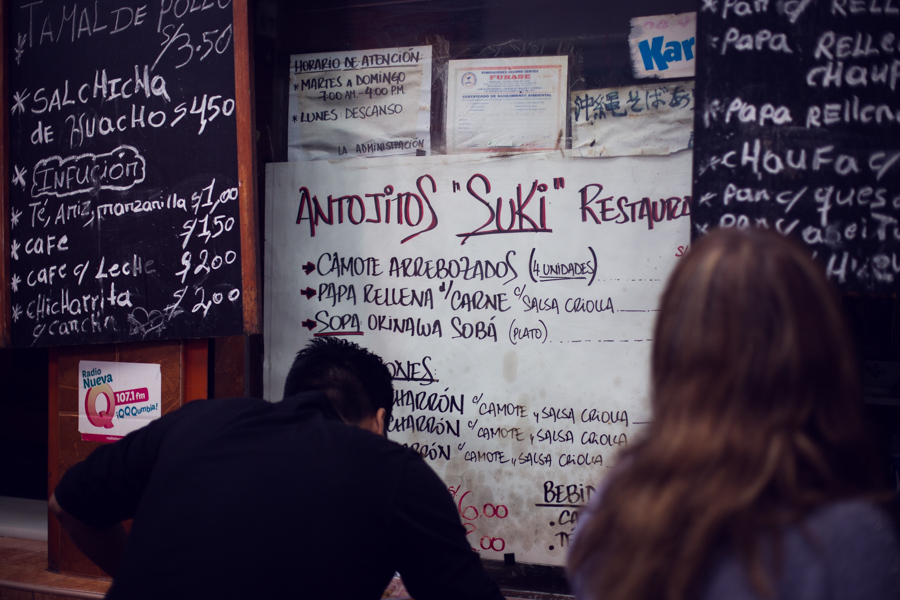 TAMAL DE POLLO
S/3.50
*SALCHICHA
de HUACHO S/4,50
* INFUCIÓN
* Té, Aniz, manzanilla S/1,00
* CAFE S/1,50
* CAFE c/ LeCHe S/2,00
* CHICHARRITA
y canchita S/2,00
Radio
Nueva
Q
107.1 fm
¡QQQumbia!
HORARIO DE ATENCIÓN:
* MARTES A DOMINGO
7:00 AM - 4:00 PM
* LUNES DESCANSO
LA ADMINISTRACIÓN
FUBASE
Kar
沖縄そばあ
ANTOJITOS "SUKI" RESTAURA
➔ CAMOTE ARREBOZADOS (4 UNIDADES)
➔ PAPA RELLENA d/ CARNE c/ SALSA CRIOLLA
➔ SOPA OKINAWA SOBÁ (PLATO)
ONES:
HARRÓN c/ CAMOTE y SALSA CRIOLLA
HARRÓN c/ CAMOTE y SALSA CRIOLLA
RRÓN c/ CAMOTE y SALSA CRIOLLA
S/6.00
.00
BEBID
. CA
. T
* Pan c/ Relle
* Papa Relle
CHAUF
* Papa Rellena
CHAUFA c/
* Pan c/ ques